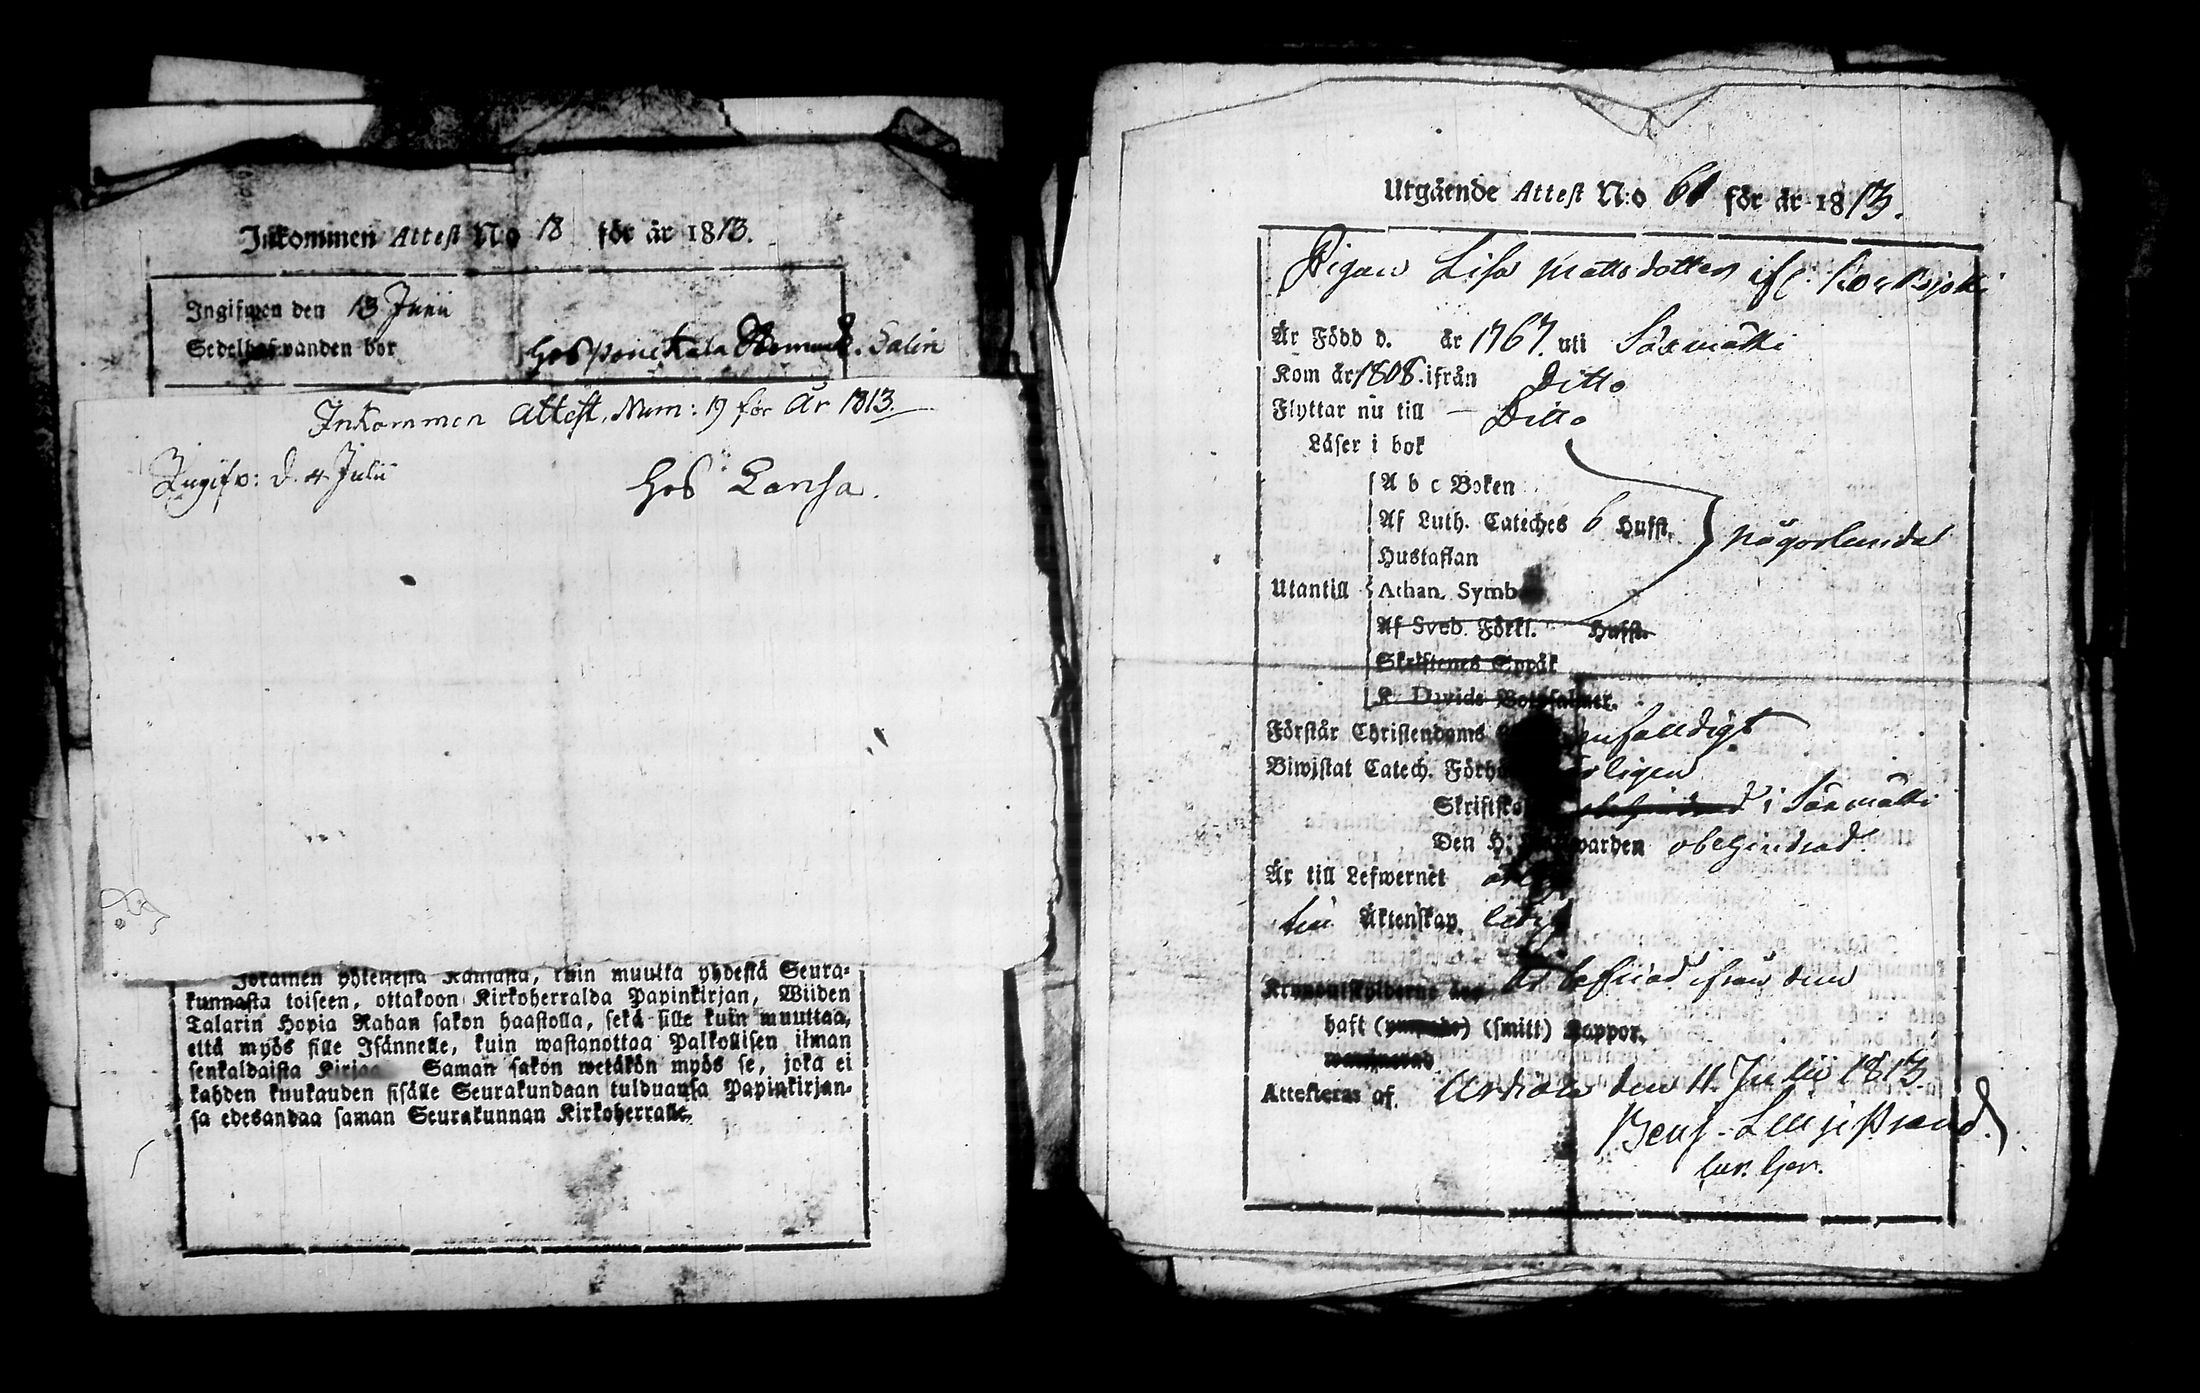 Inkommen Attest No 18 för år 1813.
Ingifwen den 13 Junii
Sedelhafwanden bor hos Salin
Inkommen Attest, Num: 19 för År 1813.
Ingifv: d. 4 Julii Hos Lansa.
Jokainen yhteisestä Kansasta, kuin muutta yhdestä Seura-
kunnasta toiseen, ottakoon Kirkoherralda Papinkirjan, Wiiden
Talarin Hopia Rahan sakon haastolla, sekä sille kuin muuttaa,
että myös sille Isännelle, kuin wastanottaa Palkollisen ilman
senkaldaista Kirjaa Saman sakon wetäkön myös se, joka ei
kahden kuukauden sisälle Seurakundaan tulduansa Papinkirjan-
sa edesandaa saman Seurakunnan Kirkoherralle.
Utgående Attest N:o 61 för år 1813.
Pigan Lisa Mattsdotter ifr.
Är Född d. år 1767. uti Säxmäki
Kom år 1808. ifrån Ditto
Flyttar nu till – Ditto
Läser i bok
A b c Boken
Af Luth. Cateches 6 Hufst.
någorlunda
Hustaflan
Utantill Athan. Symb
Af Sveb. Förkl. Hufst.
Skriftenes Språk
K. Davids Botpsalmer.
Förstår Christendoms enfalldigt
Biwistat Catech. Förhö årligen
Skriftsk i Säxmäki
Den H. warden obehindrad.
Är till Lefwernet
till Äktenskap ledig
är befriad ifrån dem
haft (smitt) Koppor.
Attesteras af Urdiala den 11. Julii 1813.
Benj. Lilljestrand.